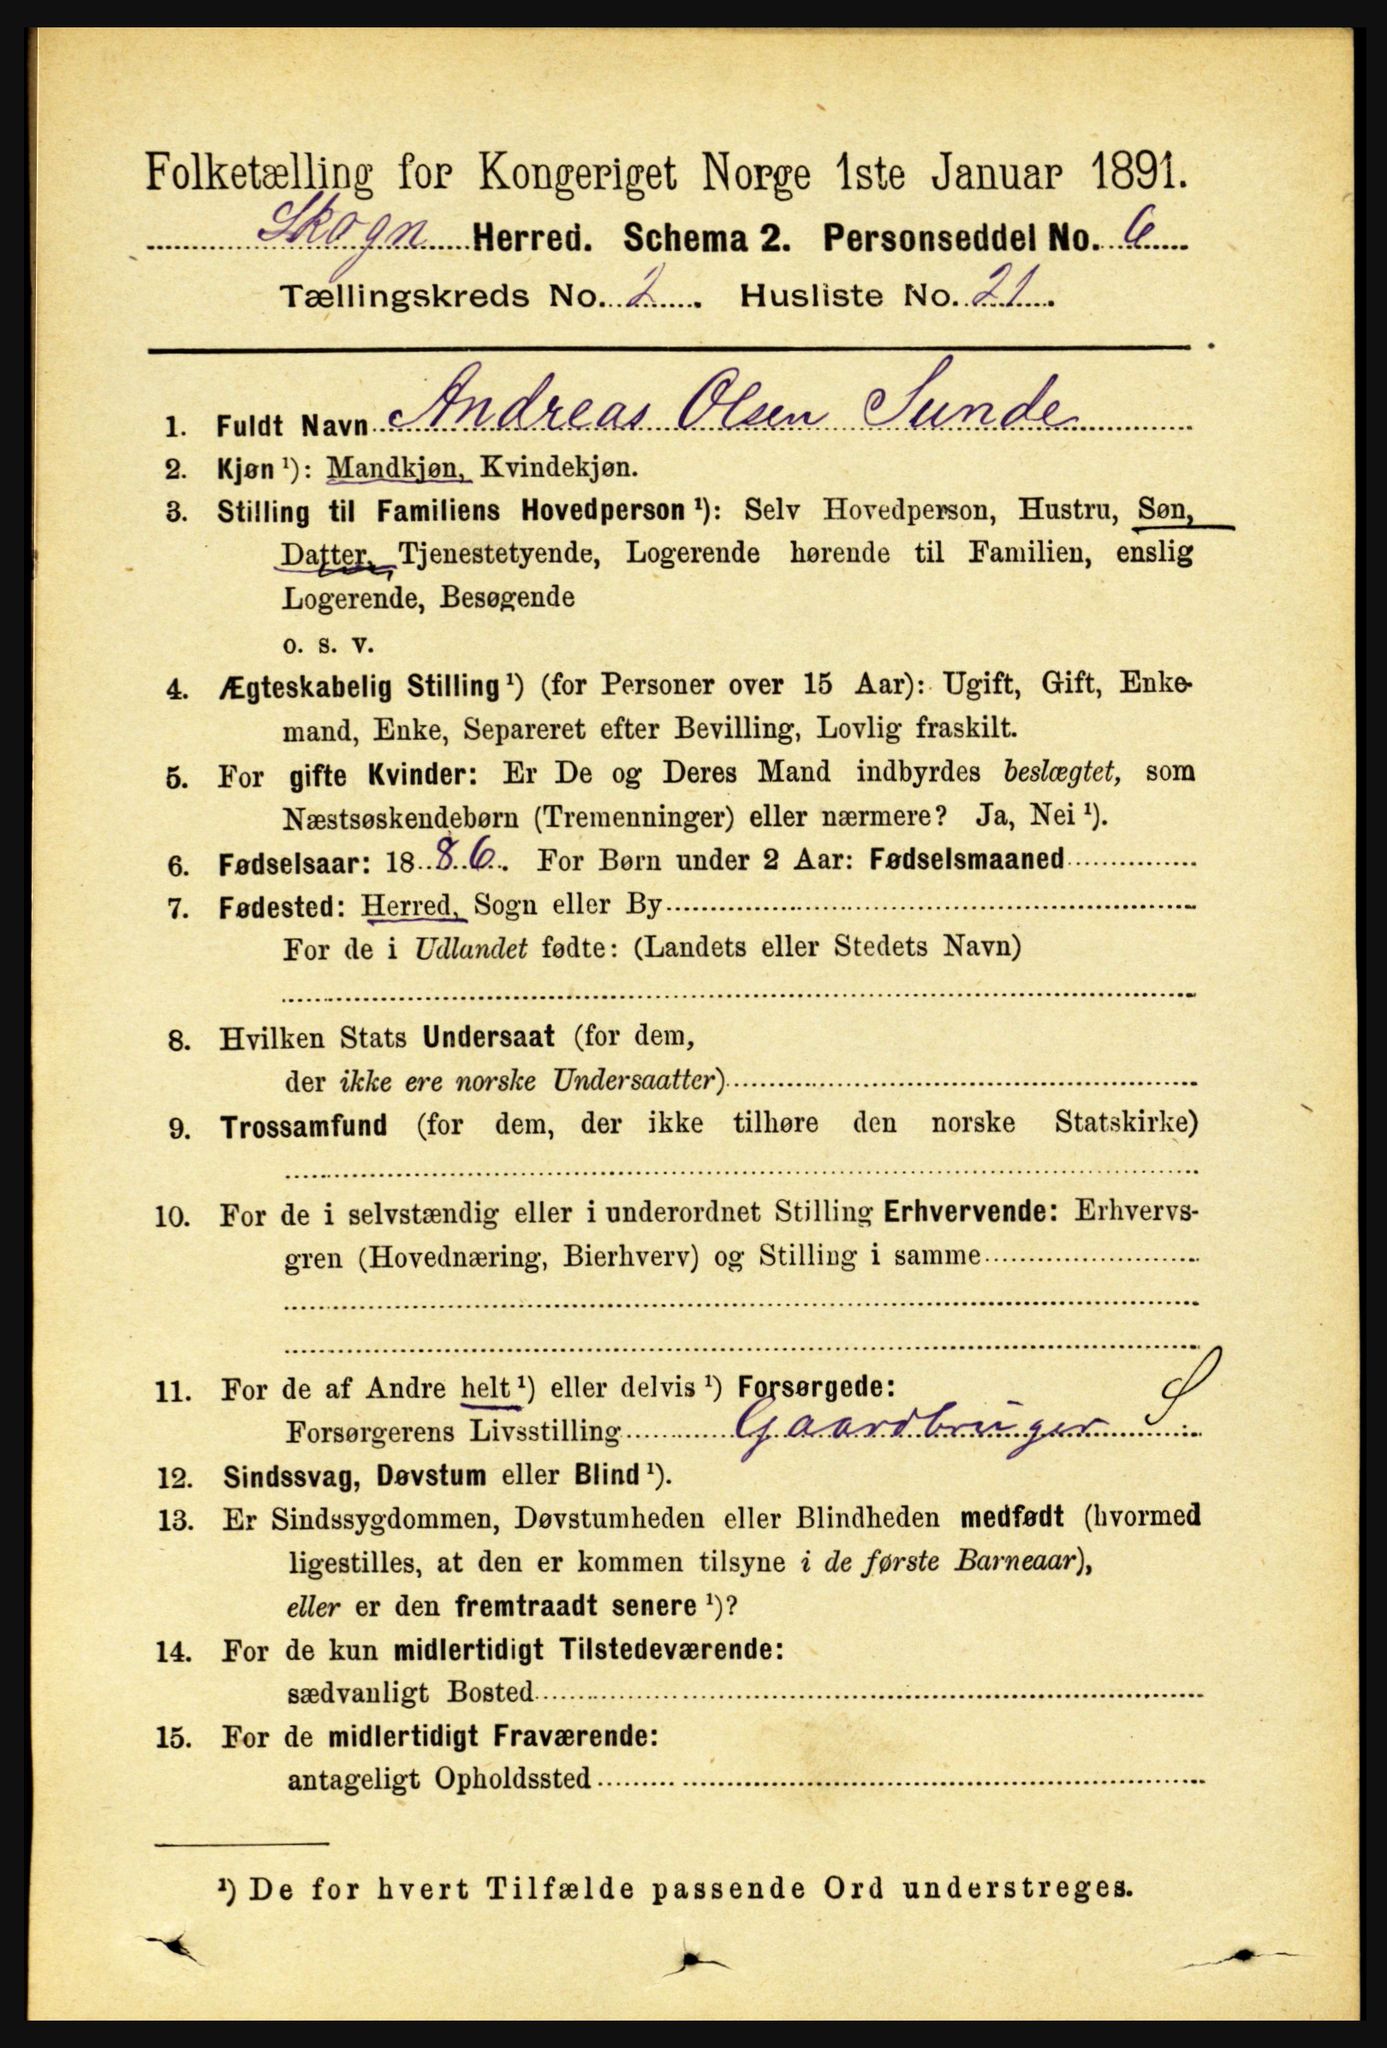 Folketælling for Kongeriget Norge 1ste Januar 1891.
Skogn Herred. Schema 2. Personseddel No. 6
Tællingskreds No. 2. Husliste No. 21.
1. Fuldt Navn Andreas Olsen Sunde
2. Kjøn ¹): Mandkjøn, Kvindekjøn.
3. Stilling til Familiens Hovedperson ¹): Selv Hovedperson, Hustru, Søn,
Datter, Tjenestetyende, Logerende hørende til Familien, enslig
Logerende, Besøgende
o. s. v.
4. Ægteskabelig Stilling ¹) (for Personer over 15 Aar): Ugift, Gift, Enke-
mand, Enke, Separeret efter Bevilling, Lovlig fraskilt.
5. For gifte Kvinder: Er De og Deres Mand indbyrdes beslægtet, som
Næstsøskendebørn (Tremenninger) eller nærmere? Ja, Nei ¹).
6. Fødselsaar: 1886. For Børn under 2 Aar: Fødselsmaaned
7. Fødested: Herred, Sogn eller By
For de i Udlandet fødte: (Landets eller Stedets Navn)
8. Hvilken Stats Undersaat (for dem,
der ikke ere norske Undersaatter)
9. Trossamfund (for dem, der ikke tilhøre den norske Statskirke)
10. For de i selvstændig eller i underordnet Stilling Erhvervende: Erhvervs-
gren (Hovednæring, Bierhverv) og Stilling i samme
11. For de af Andre helt ¹) eller delvis ¹) Forsørgede:
Forsørgerens Livsstilling Gaardbruger S
12. Sindssvag, Døvstum eller Blind ¹).
13. Er Sindssygdommen, Døvstumheden eller Blindheden medfødt (hvormed
ligestilles, at den er kommen tilsyne i de første Barneaar),
eller er den fremtraadt senere ¹)?
14. For de kun midlertidigt Tilstedeværende:
sædvanligt Bosted
15. For de midlertidigt Fraværende:
antageligt Opholdssted
¹) De for hvert Tilfælde passende Ord understreges.